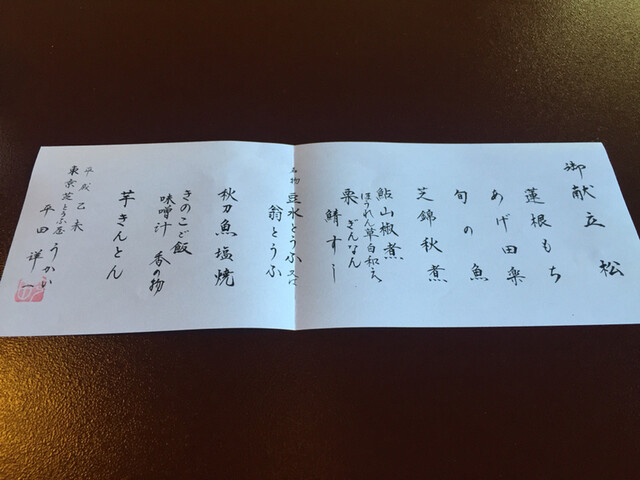 御献立 松
蓮根もち
あげ田楽
旬の魚
芝錦秋煮
鮎山椒煮
ほうれん草白和え
ぎんなん
栗
鯖すし
名物 豆水とうふ 又は
翁とうふ
秋刀魚塩焼
きのこご飯
味噌汁 香の物
芋きんとん
平成乙未
東京芝とうふ屋うかい
平田 祥一